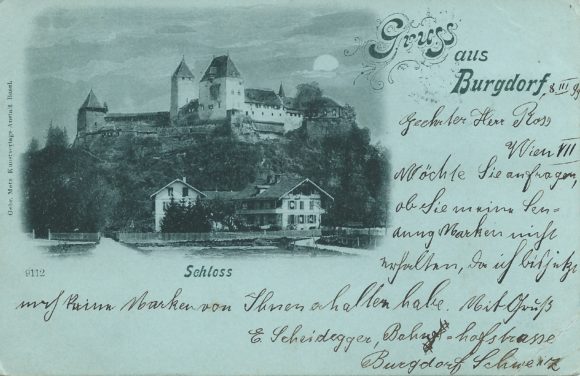 Gruss
aus
Burgdorf,
8 III 99
Geehrter Herr Ross
Wien VII
Möchte Sie anfragen,
ob Sie meine Sen-
dung Marken nicht
erhalten, da ich bis jetzt
noch keine Marken von Ihnen erhalten habe. Mit Gruß
E. Scheidegger, Bahnhofstrasse
Burgdorf Schweiz
Schloss
9112
Gebr. Metz Kunstverlags-Anstalt Basel.